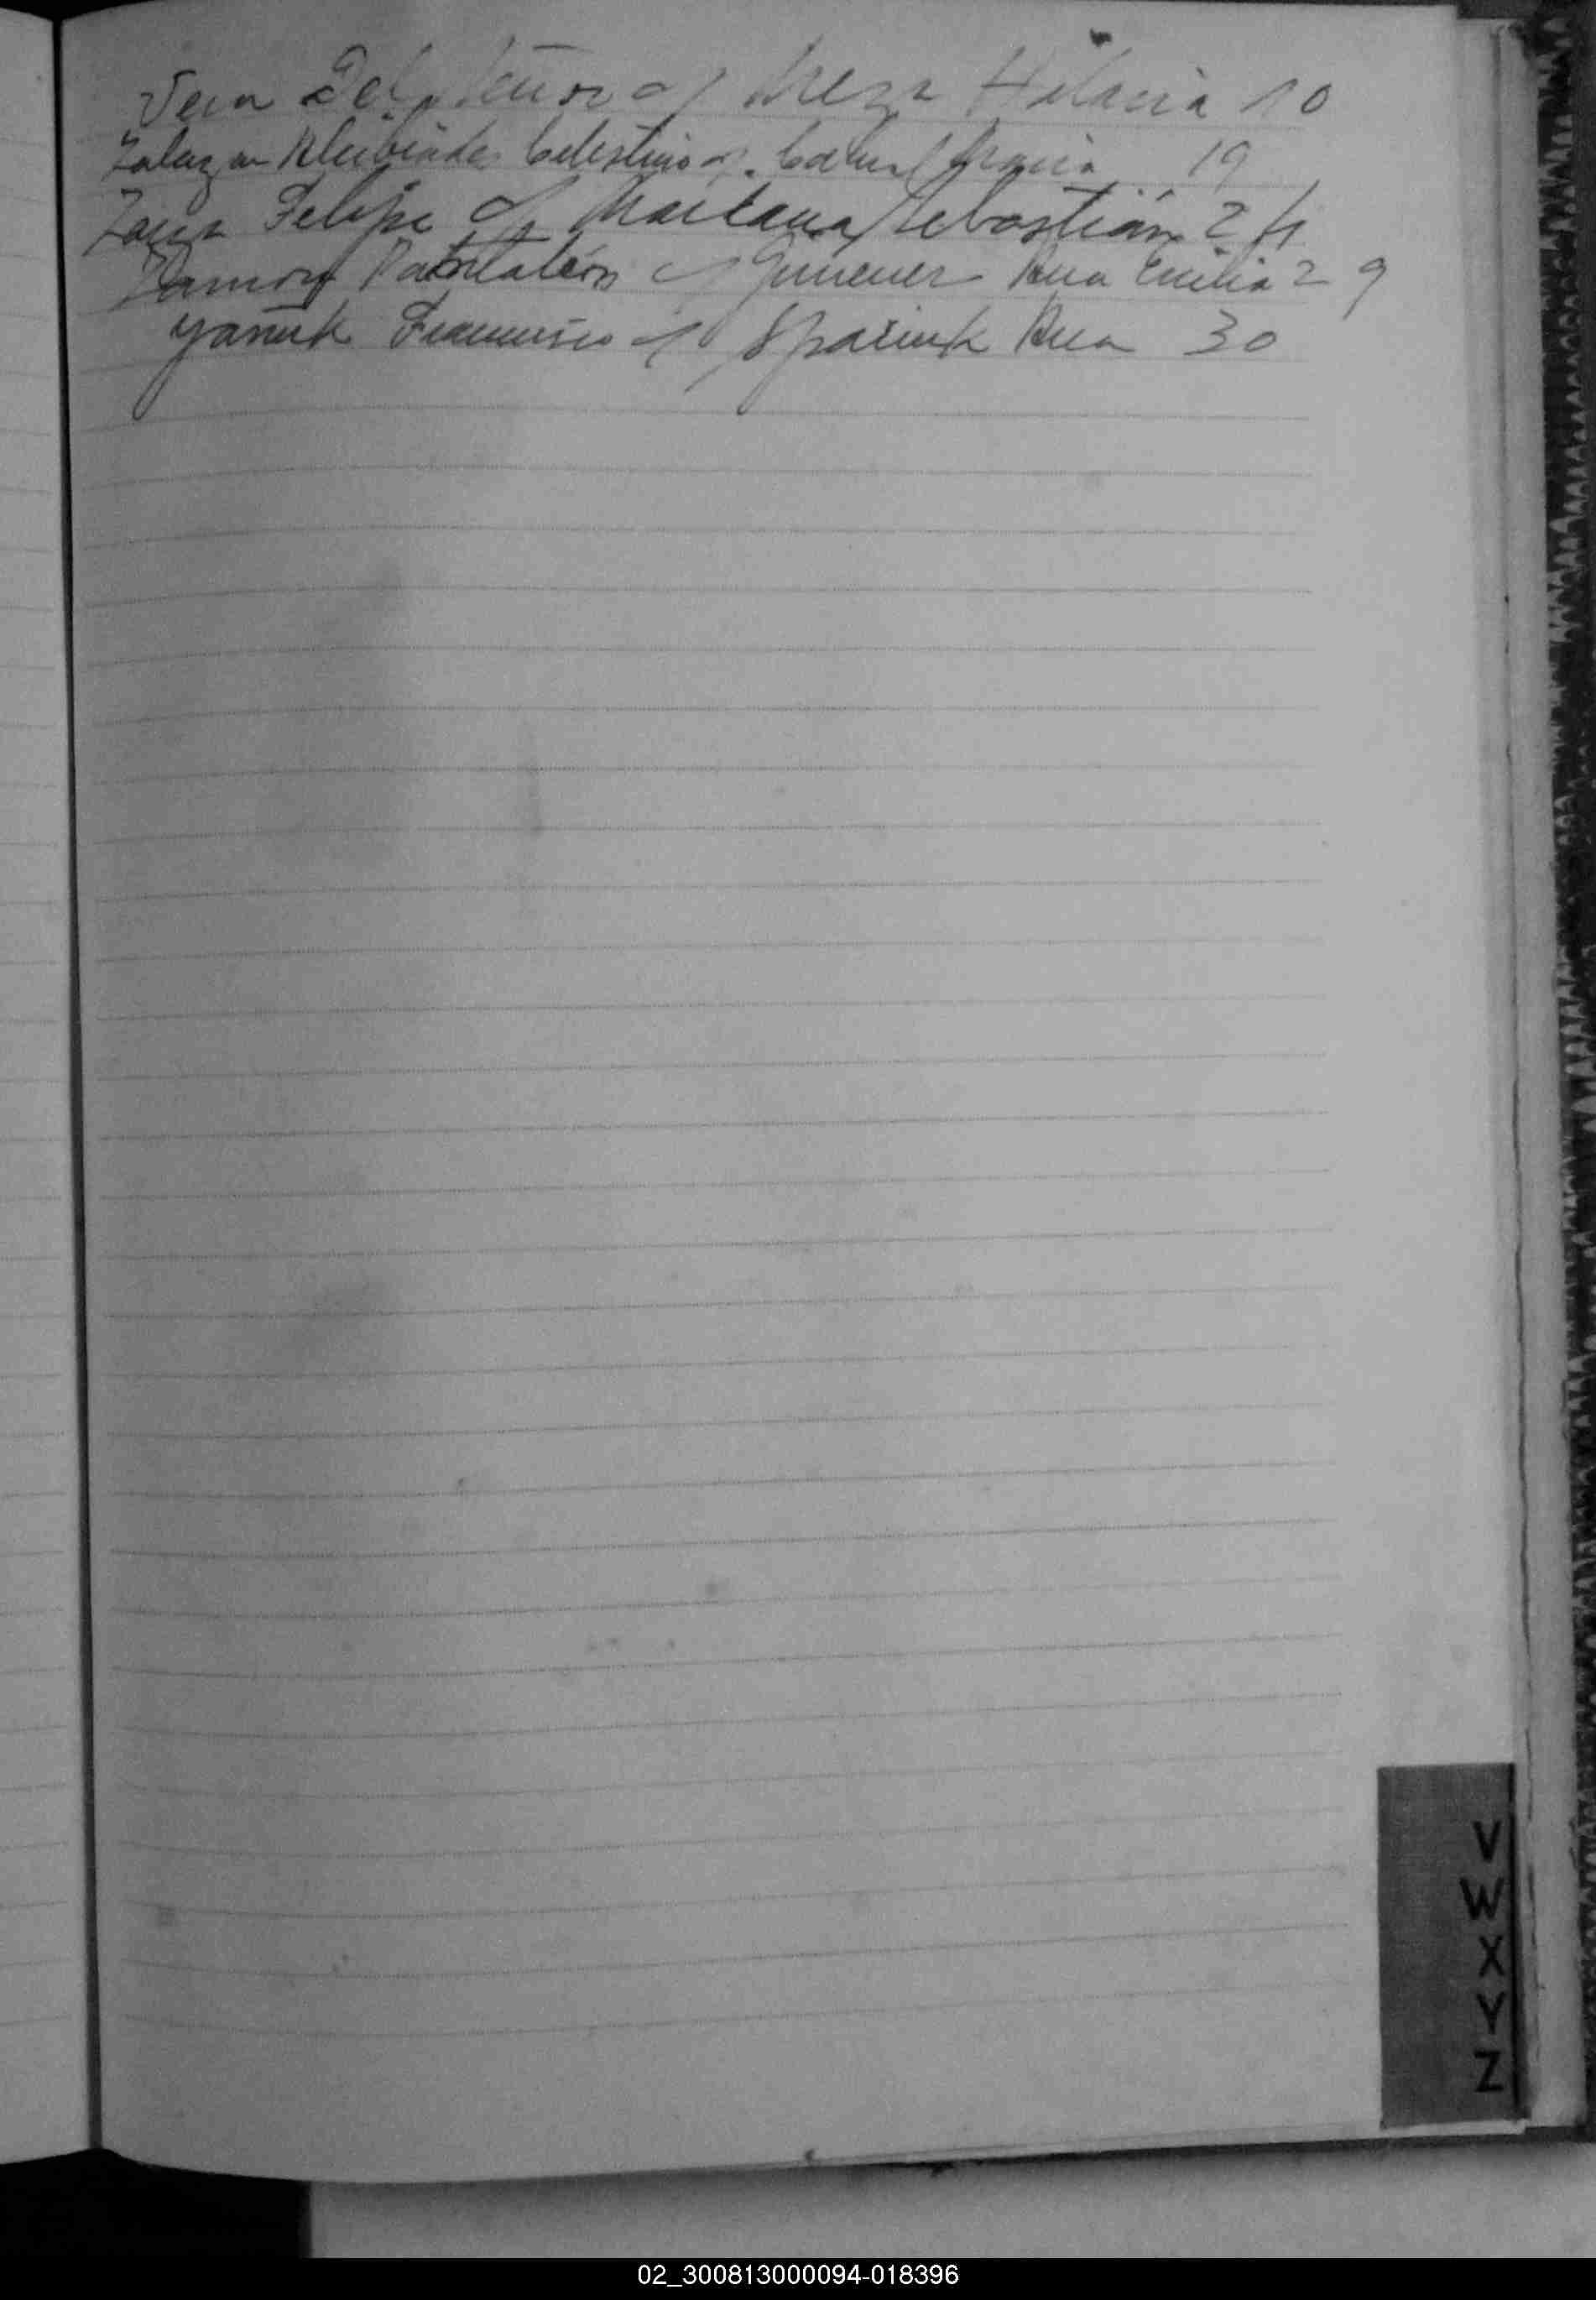 Vera Del Señor c/ Meza Hilaria 10
Zalazar Alcibiades Celestino c/. Cabral Maria 19
Zaya Felipe c/ Maidana Sebastián 24
Zamory Pantaleón c/ Gimenez Ana Emilia 29
Yañuk Francisco c/ Spasiuk Ana 30
V
W
X
Y
Z
02_300813000094-018396